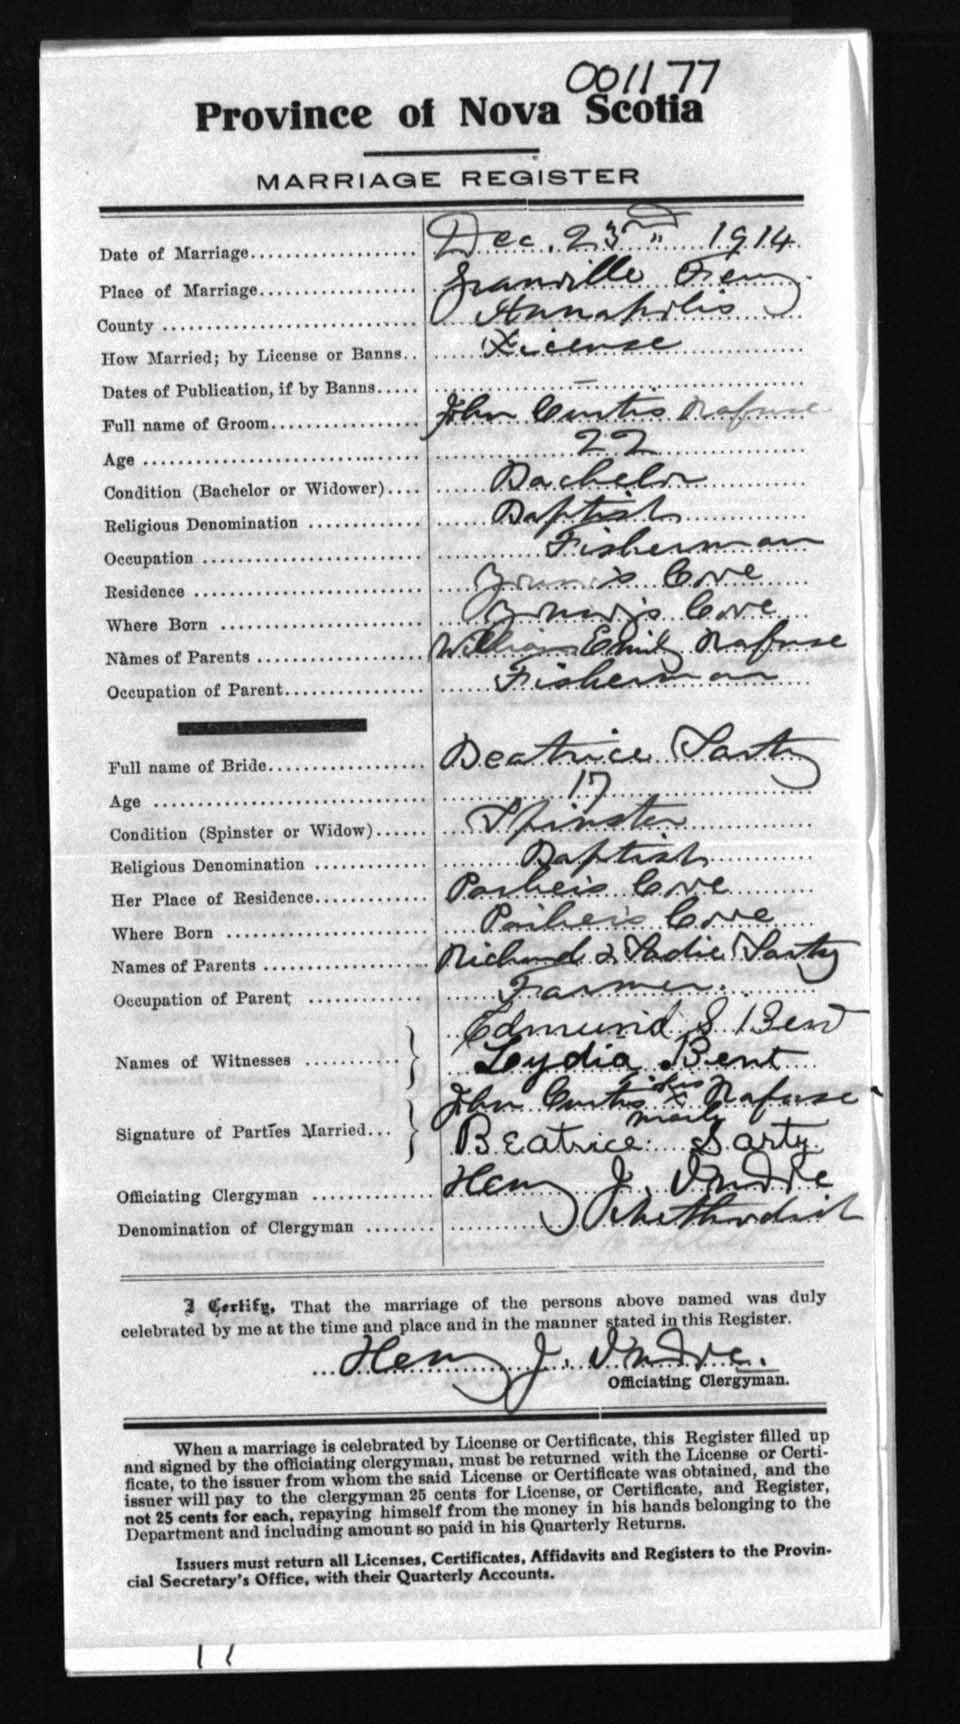 001177
Province of Nova Scotia
MARRIAGE REGISTER
Date of Marriage Dec. 23rd 1914
Place of Marriage Granville Ferry
County Annapolis
How Married; by License or Banns License
Dates of Publication, if by Banns —
Full name of Groom John Curtis Rafuse
Age 22
Condition (Bachelor or Widower) Bachelor
Religious Denomination Baptist
Occupation Fisherman
Residence Young's Cove
Where Born Young's Cove
Names of Parents William Emily Rafuse
Occupation of Parent Fisherman
Full name of Bride Beatrice Sarty
Age 17
Condition (Spinster or Widow) Spinster
Religious Denomination Baptist
Her Place of Residence Parker's Cove
Where Born Parker's Cove
Names of Parents Richard & Sadie Sarty
Occupation of Parent Farmer.
Edmund S Bent
Names of Witnesses Lydia Bent
John Curtis his x mark Rafuse
Signature of Parties Married Beatrice Sarty.
Officiating Clergyman Henry J. Indoe
Denomination of Clergyman Methodist
I Certify, That the marriage of the persons above named was duly
celebrated by me at the time and place and in the manner stated in this Register.
Henry J. Indoe.
Officiating Clergyman.
When a marriage is celebrated by License or Certificate, this Register filled up
and signed by the officiating clergyman, must be returned with the License or Certi-
ficate, to the issuer from whom the said License or Certificate was obtained, and the
issuer will pay to the clergyman 25 cents for License, or Certificate, and Register,
not 25 cents for each, repaying himself from the money in his hands belonging to the
Department and including amount so paid in his Quarterly Returns.
Issuers must return all Licenses, Certificates, Affidavits and Registers to the Provin-
cial Secretary's Office, with their Quarterly Accounts.